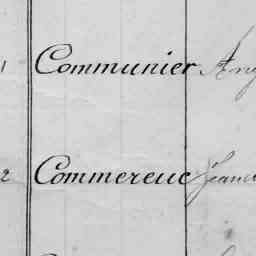 1 Communier Ang
2 Commereuc Jeann